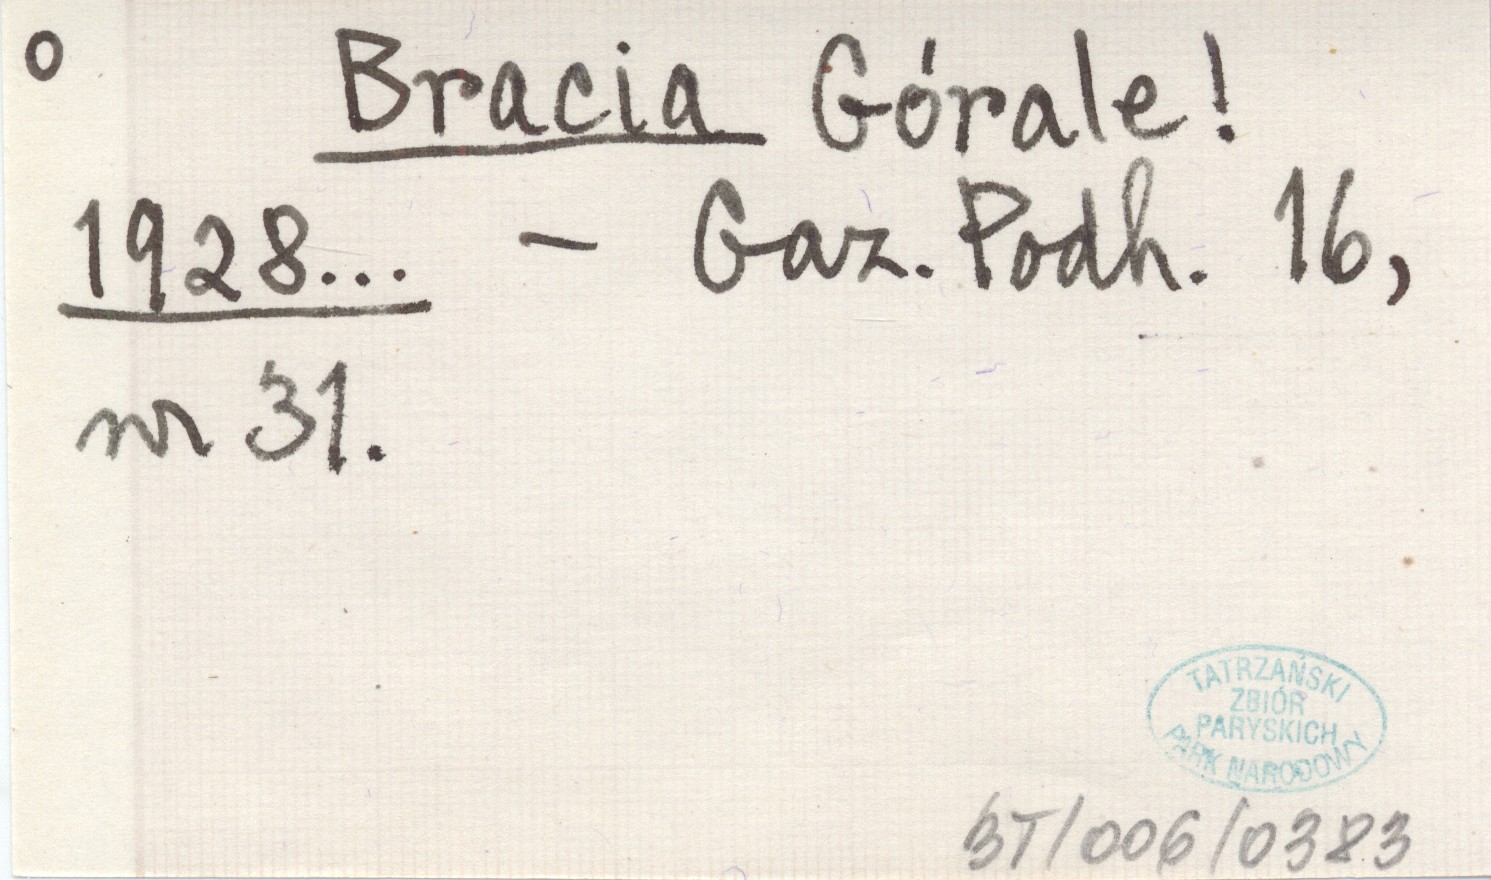 o Bracia Górale!
1928... – Gaz. Podh. 16,
nr 31.
TATRZAŃSKI
ZBIÓR
PARYSKICH
PARK NARODOWY
3T/006/0383